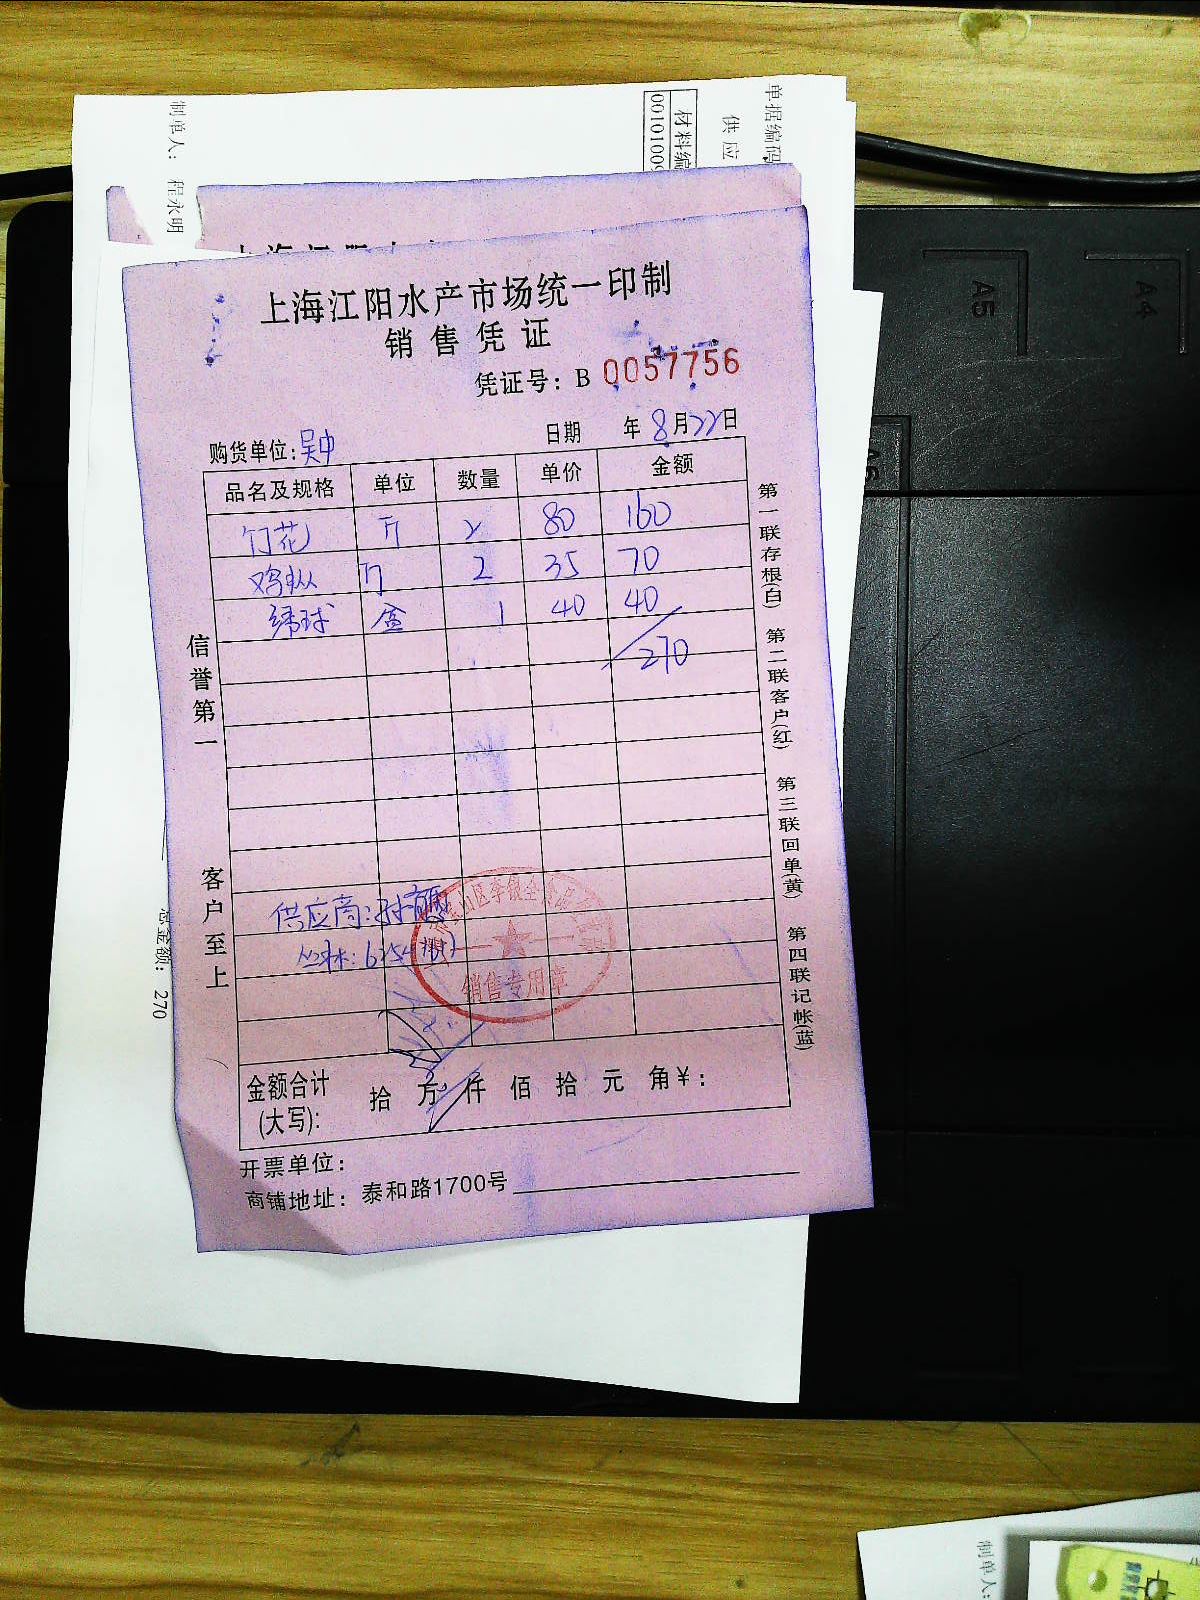 单据编码
供应
材料编
00101009
制单人： 程永明
上海江阳水产市场统一印制
销售凭证
凭证号：B 0057756
购货单位：吴中
日期 年8月22日
品名及规格 单位 数量 单价 金额
竹花 斤 2 80 160
鸡枞 斤 2 35 70
绣球 盒 1 40 40
270
信誉第一
客户至上
第一联存根(白)
第二联客户(红)
第三联回单(黄)
第四联记帐(蓝)
供应商：孙
销售专用章
金额合计
(大写)：
拾 万 仟 佰 拾 元 角￥：
开票单位：
商铺地址：泰和路1700号
总金额： 270
A5
A4
A6
制单人：